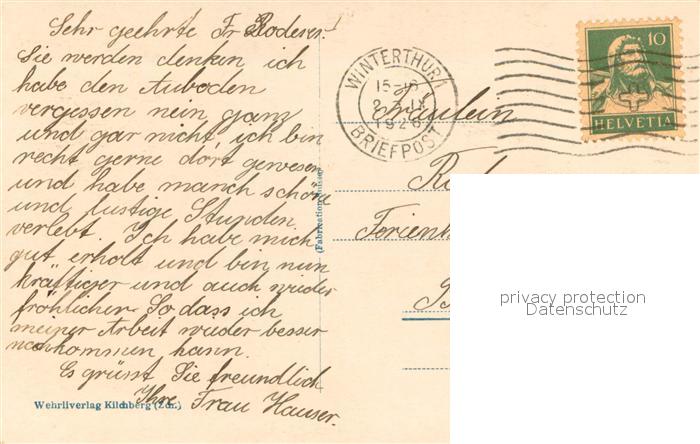 Sehr geehrte Fr Roderer!
Sie werden denken ich
habe den Auboden
vergessen nein ganz
und gar nicht, ich bin
recht gerne dort gewesen
und habe manch schöne
und lustige Stunden
verlebt. Ich habe mich
gut erholt und bin nun
kräftiger und auch wieder
fröhlicher. So dass ich
meiner Arbeit wieder besser
nachkommen kann.
Es grüsst Sie freundlich
Ihre Frau Hauser.
Wehrliverlag Kilchberg (Zch.)
WINTERTHUR 1
1926
BRIEFPOST
10
HELVETIA
Fräulein
Ferienh
privacy protection
Datenschutz